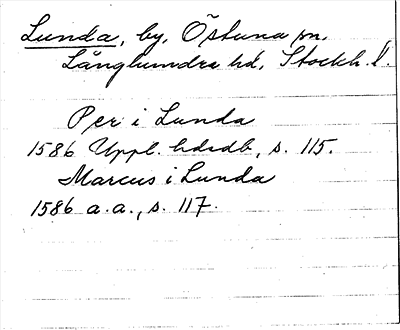 Lunda, by, Östuna sn,
Långhundra hd, Stockh. l.
Per i Lunda
1586 Uppl. hdrdb, s. 115.
Marcus i Lunda
1586 a.a., s. 117.